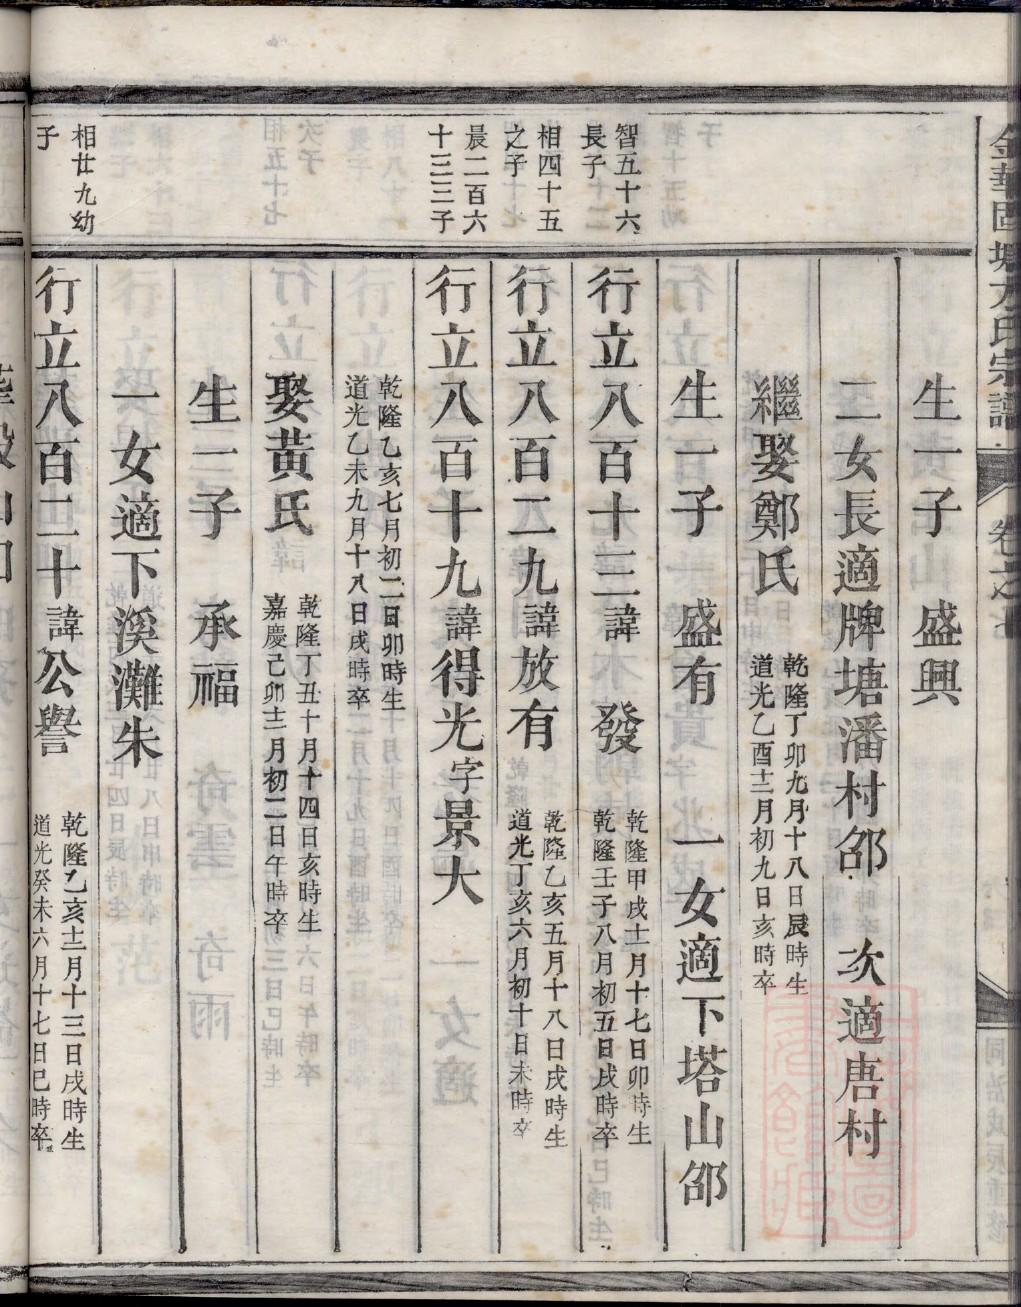 金華固塘方氏宗譜
卷之七
同治戊辰重修
生一子　盛興
二女長適牌塘潘村邵　次適唐村
繼娶鄭氏
乾隆丁卯九月十八日辰時生
道光乙酉十二月初九日亥時卒
生一子　盛有　一女適下塔山邵
智五十六
長子
行立八百十三諱　發
乾隆甲戌十二月十七日卯時生
乾隆壬子八月初五日戌時卒
相四十五
之子
行立八百二九諱放有
乾隆乙亥五月十八日戌時生
道光丁亥六月初十日未時卒
晨二百六
十三三子
行立八百十九諱得光字景大
乾隆乙亥七月初二日卯時生
道光乙未九月十八日戌時卒
娶黃氏
乾隆丁丑十月十四日亥時生
嘉慶己卯十二月初二日午時卒
生一子　承福
一女適下溪灘朱
相廿九幼
子
行立八百二十諱公譽
乾隆乙亥十二月十三日戌時生
道光癸未六月十七日巳時卒